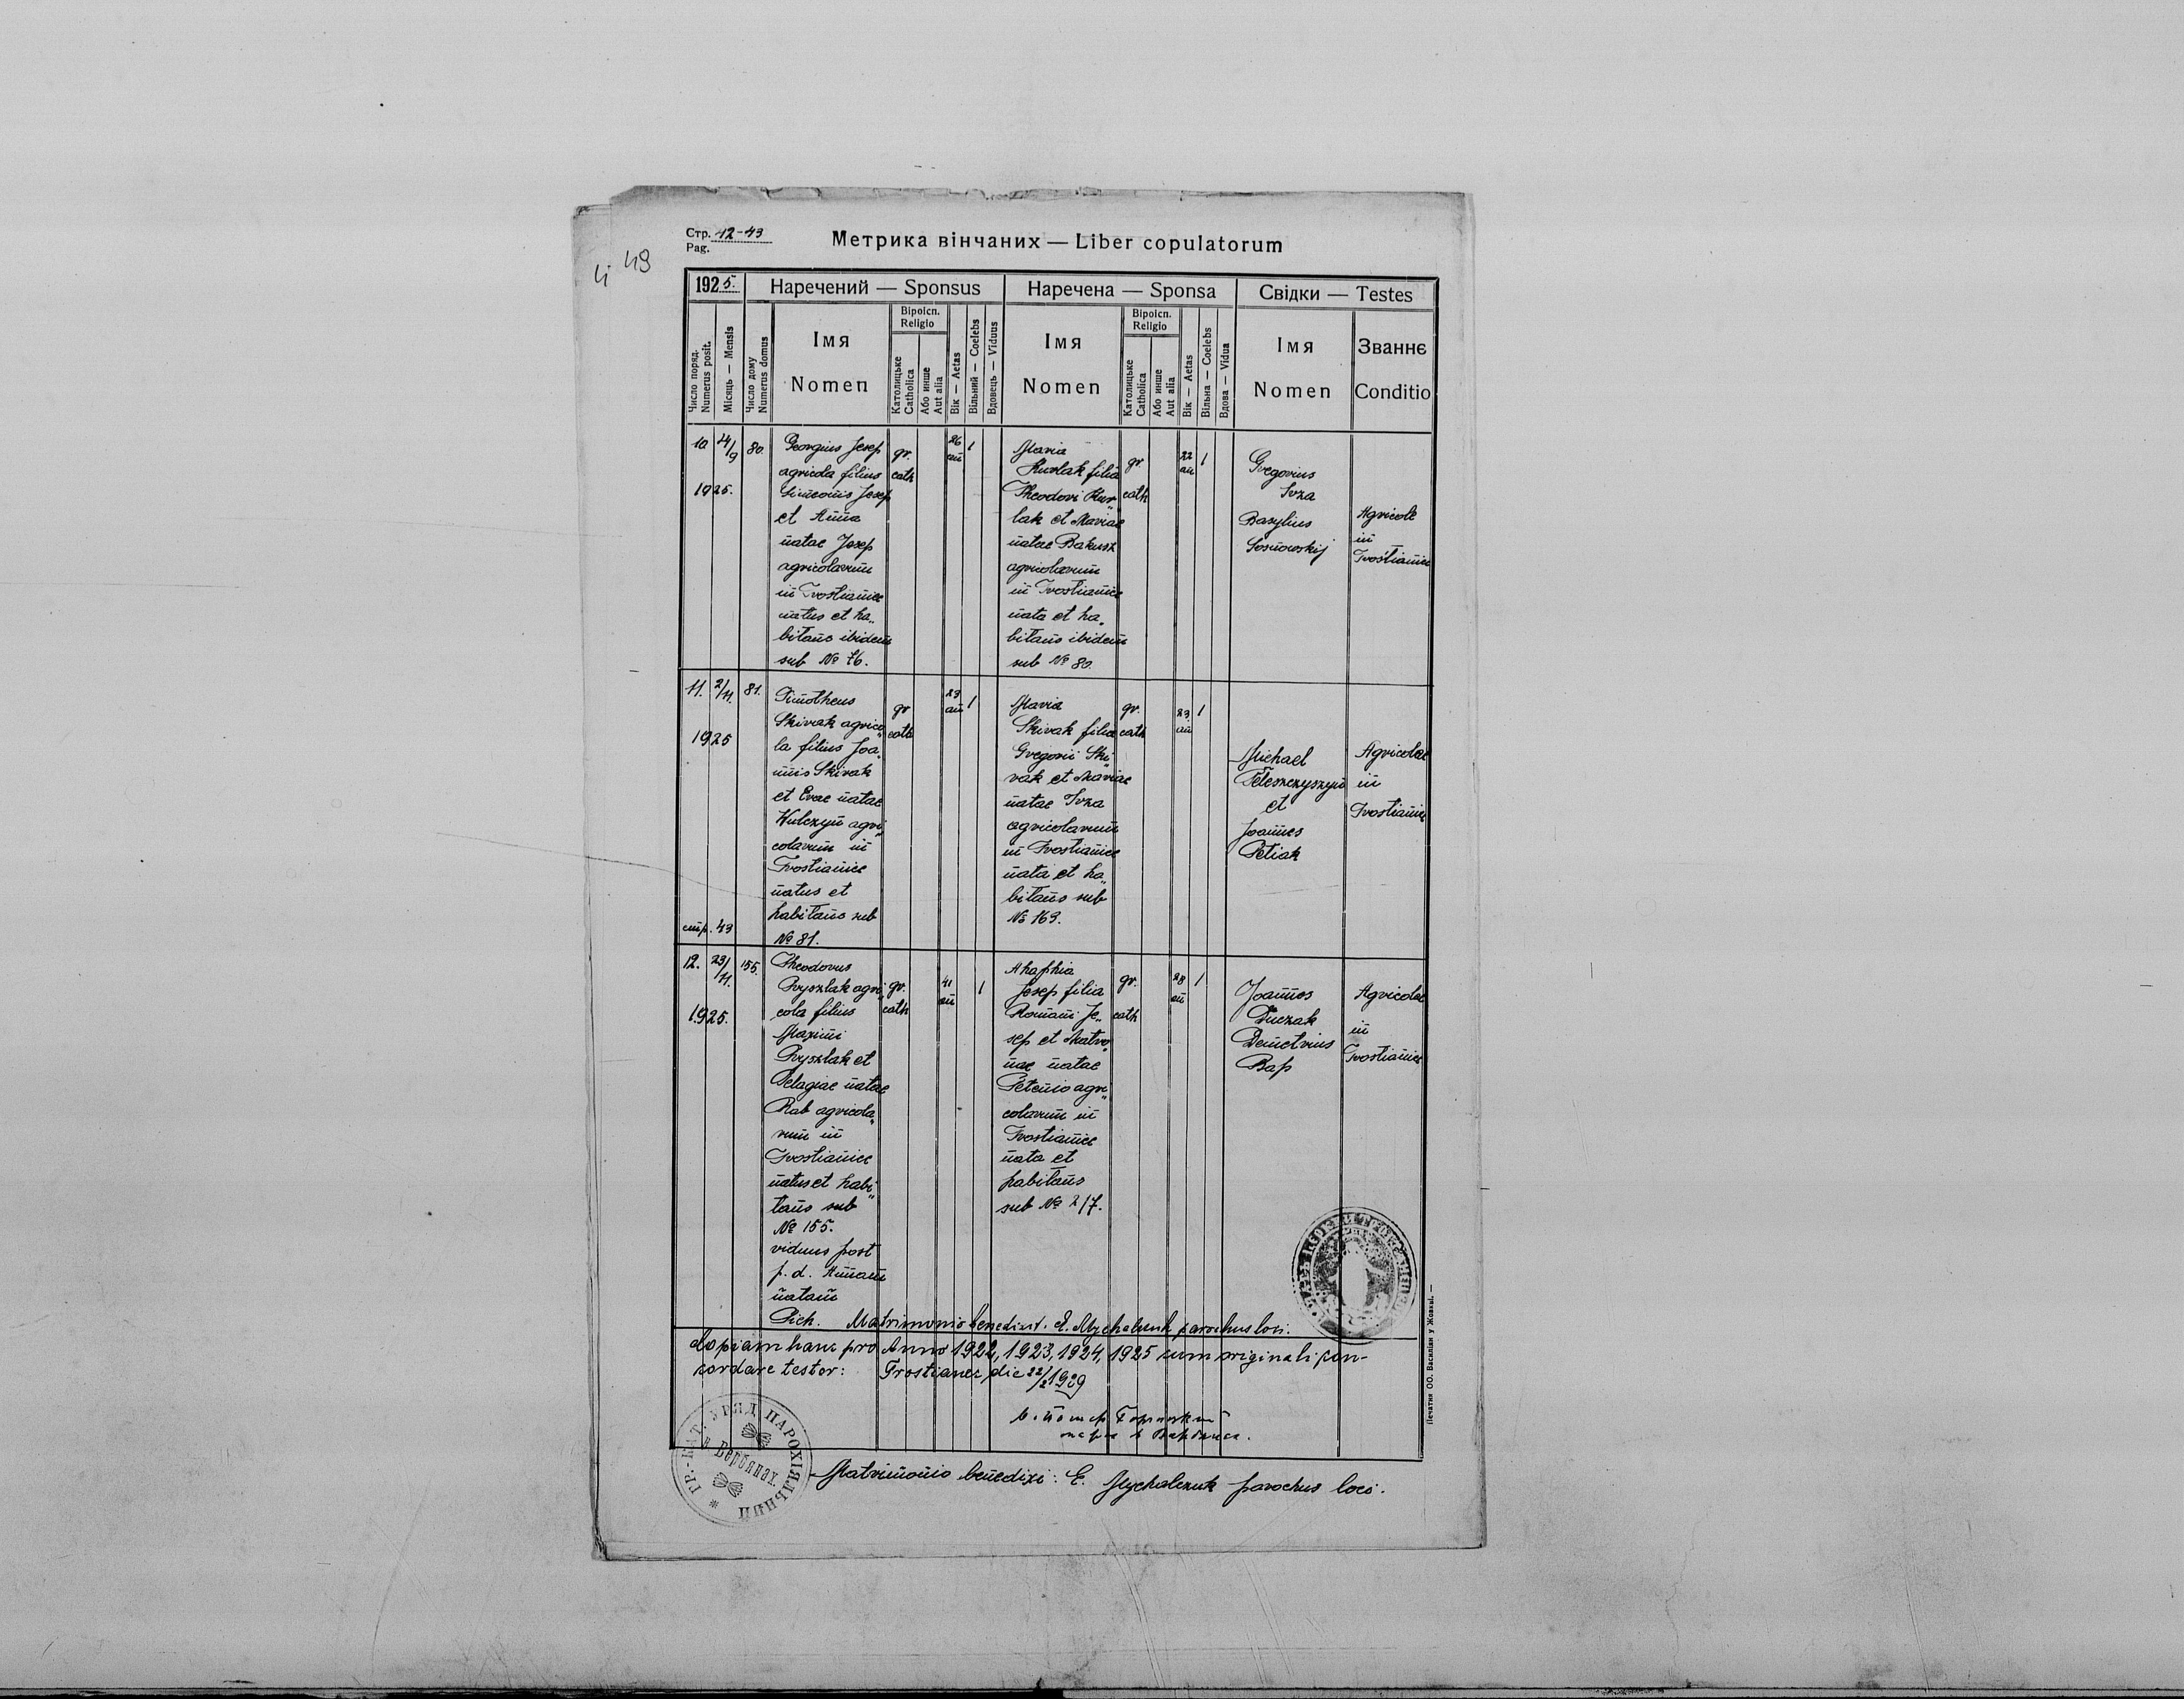 Стр. 42-43
Pag.
Метрика вінчаних — Liber copulatorum
49
1925.
Наречений — Sponsus
Наречена — Sponsa
Свідки — Testes
Число поряд.
Numerus posit.
Місяць — Mensis
Число дому
Numerus domus
Імя
Nomen
Віроісп.
Religio
Католицьке
Catholica
Або инше
Aut alia
Вік — Aetas
Вільний — Coelebs
Вдовець — Viduus
Імя
Nomen
Віроісп.
Religio
Католицьке
Catholica
Або инше
Aut alia
Вік — Aetas
Вільна — Coelebs
Вдова — Vidua
Імя
Nomen
Званнє
Conditio
10
24/9
1925.
80.
Georgius Jesep
agricola filius
Simeonis Jesep
et Anna
natae Jesep
agricolarum
in Trostianiec
natus et ha„
bitans ibidem
sub № 76.
gr.
cath
26
an
1
Maria
Kurlak filia
Theodori Kur„
lak et Mariae
natae Bakusz
agricolarum
in Trostianiec
nata et ha„
bitans ibidem
sub № 80.
gr.
cath
22
an
1
Gregorius
Irza
Bazylius
Sosnowskij
Agricole
in
Trostianiec
11.
2/11.
1925
81.
Timotheus
Skivak agrico„
la filius Joa„
nnis Skivak
et Evae natae
Kulczyn agri„
colarum in
Trostianiec
natus et
habitans sub
№ 81.
gr
cath
23
an
1
Maria
Skivak filia
Gregorii Ski„
vak et Mariae
natae Irza
agricolarum
in Trostianiec
nata et ha„
bitans sub
№ 169.
gr.
cath
23
an
1
Michael
Teleszczyszyn
et
Joannes
Petiak
Agricolae
in
Trostianiec
стр. 43
12.
23/11.
1925.
155.
Theodorus
Pryszlak agri„
cola filius
Maximi
Pryszlak et
Pelagiae natae
Rab agricola„
rum in
Trostianiec
natus et habi„
tans sub
№ 155.
viduus post
p. d. Annam
natam
Pich.
gr.
cath
41
an
1
Ahaphia
Jesep filia
Romani Je„
sep et Matro„
nae natae
Petenio agri„
colarum in
Trostianiec
nata et
habitans
sub № 217.
gr.
cath
28
an
1
Joannes
Duczak
Demetrius
Bap
Agricolae
in
Trostianiec
Matrimonio benedixit. E. Mychalczuk parochus loci.
Copiam hanc pro Anno 1922, 1923, 1924, 1925 cum originali con-
cordare testor: Trostianec die 22/2 1929
ГР.-КАТ. УРЯД ПАРОХІЯЛЬНИЙ
в Вербянах
Matrimonio benedixi: E. Mychalczuk parochus loci.
Печатня ОО. Василіян у Жовкві. —